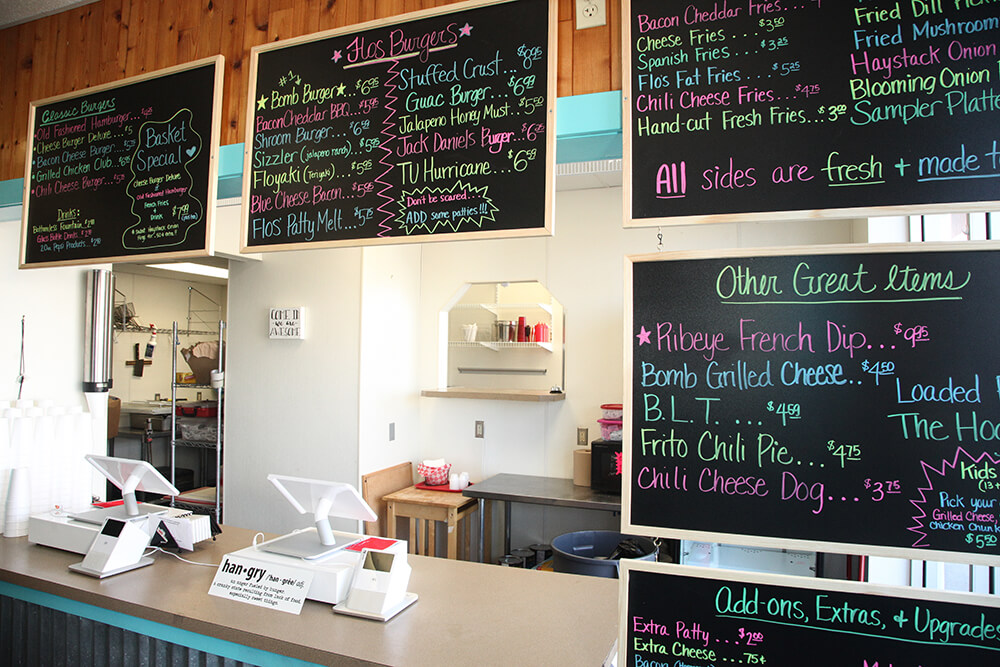 Classic Burgers
Old Fashioned Hamburger
Cheese Burger Deluxe...$5
Bacon Cheese Burger
Grilled Chicken Club
Chili Cheese Burger
Drinks:
Bottomless Fountain
Glass Bottle Drinks
20oz Pepsi Products
Basket
Special
Cheese Burger Deluxe
Old Fashioned Hamburger
French Fries
Drink
$7.99
Flos Burgers
#1
Bomb Burger $6.95
Bacon Cheddar BBQ $5.95
Shroom Burger $6.69
Sizzler (jalapeno ranch) $5.95
Floyaki (Teriyaki) $5.95
Blue Cheese Bacon $5.95
Flos Patty Melt $5.75
Stuffed Crust $8.95
Guac Burger $6.99
Jalapeno Honey Must $5.50
Jack Daniels Burger $6.75
TU Hurricane $6.59
Don't be scared...
ADD some patties!!!
Bacon Cheddar Fries
Cheese Fries $3.50
Spanish Fries $3.25
Flos Fat Fries $5.25
Chili Cheese Fries $4.75
Hand-cut Fresh Fries $3.00
Fried Dill
Fried Mushroom
Haystack Onion
Blooming Onion
Sampler
All sides are fresh + made
Other Great Items
Ribeye French Dip...$9.95
Bomb Grilled Cheese..$4.50
B.L.T. ... $4.59
Frito Chili Pie... $4.75
Chili Cheese Dog...$3.75
Loaded
The
Kids
Pick your
Grilled Cheese,
chicken
$5.50
Add-ons, Extras, + Upgrades
Extra Patty $2.00
Extra Cheese 75¢
COME IN
we are
AWESOME
han•gry /han-grēe/ adj.
an anger fueled by hunger
a cranky state resulting from lack of food
especially sweet things.